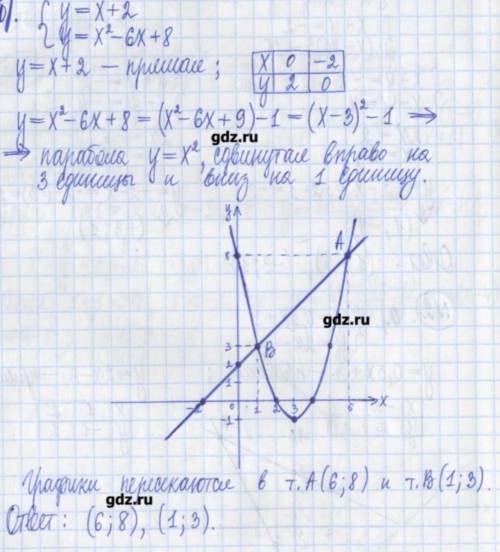 б). { y = x + 2
{ y = x² - 6x + 8
y = x + 2 — прямая ;
x 0 -2
y 2 0
y = x² - 6x + 8 = (x² - 6x + 9) - 1 = (x - 3)² - 1 ⇒
gdz.ru
⇒ парабола y = x², сдвинутая вправо на
3 единицы и вниз на 1 единицу.
y
8
A
gdz.ru
3
B
2
1
-2 0 1 2 3 6 x
-1
Графики пересекаются в т. A (6; 8) и т. B (1; 3).
gdz.ru
Ответ: (6; 8), (1; 3).